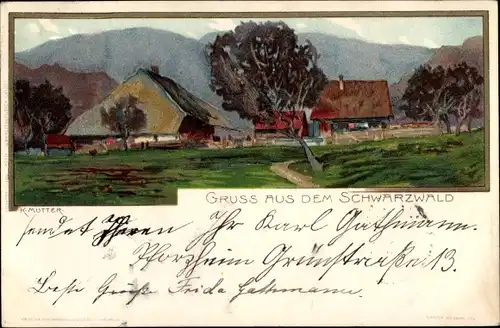 GRUSS AUS DEM SCHWARZWALD
K. MUTTER
sendet Ihnen Ihr Karl Guthmann.
Pforzheim Grünstraße 13.
Beste Grüße Frida Guthmann.